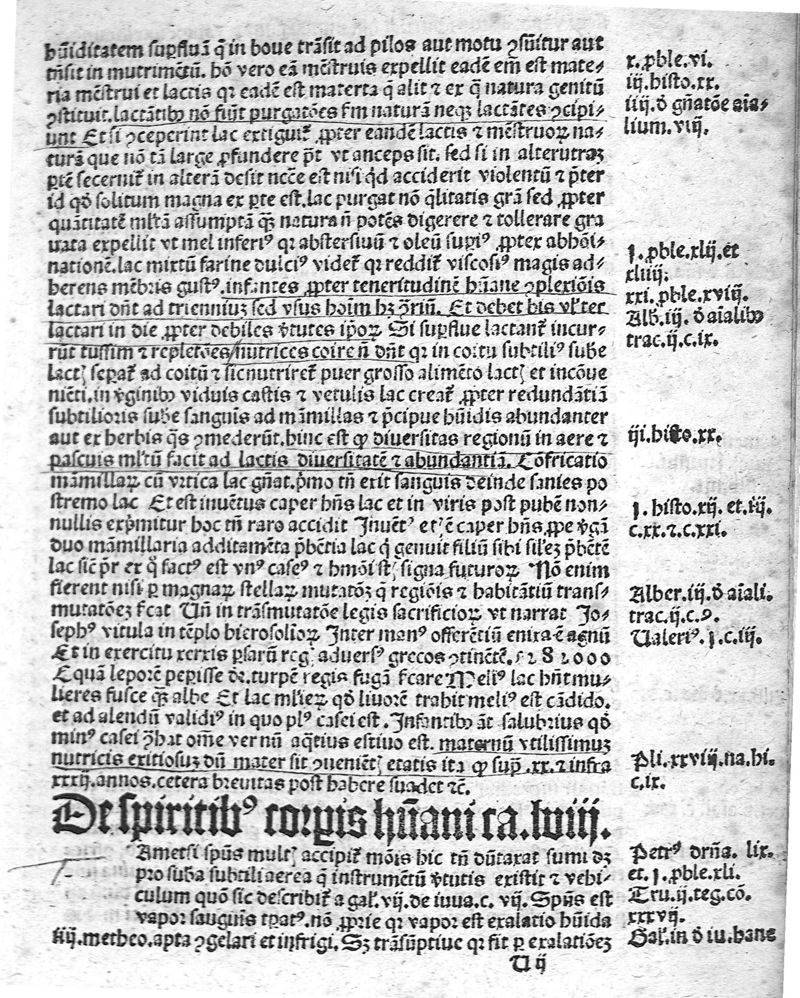 hūiditatem suꝑfluā q̄ in boue trāsit ad pilos aut motu ꝯsūitur aut
trāsit in nutrimētū. hō vero eā mēstruis expellit eadē em̄ est mate-
ria mēstrui et lactis qꝛ eadē est materia q̄ alit ⁊ ex q̄ natura genitū
ꝯstituit. lactātibꝫ nō fiūt purgatōes fm naturā neqꝫ lactātes ꝯcipi-
unt Et si ꝯceperint lac extiguit̄ ꝓpter eandē lactis ⁊ mēstruoꝝ na-
turā que nō tā large ꝓfundere pōt vt anceps sit. sed si in alterutraꝫ
ꝑtē secernit̄ in alterā desit necē est nisi qd acciderit violentū ⁊ p̄ter
id qd̓ solitum magna ex ꝑte est. lac purgat nō q̄litatis grā sed ꝓpter
quātitatē mltā assumptā qꝫ natura n̄ potēs digerere ⁊ tollerare gra
uata expellit vt mel inferiꝰ qꝛ abstersiuū ⁊ oleū supiꝰ ꝓptex abhōi-
nationē. lac mixtū farine dulciꝰ videt̄ qꝛ reddit̄ viscosiꝰ magis ad-
herens mēbris gustꝰ. infantes ꝓpter teneritudinē hūane ꝯplexiōis
lactari dn̄t ad trienniuꝫ sed vsus hoīm hꝫ Et debet bis vl̓ ter
lactari in die ꝓpter debiles v̓tutes ip̄oꝝ Si suꝑflue lactant̄ incur-
rūt tussim ⁊ repletōes/nutrices coire n̄ dn̄t qꝛ in coitu subtiliꝰ sube
lactꝭ sepat̄ ad coitū ⁊ sic nutriret̄ puer grosso alimēto lactꝭ et incōue
niēti. in v̓ginibꝫ viduis castis ⁊ vetulis lac creat̄ ꝓpter redundātiā
subtilioris sube sanguīs ad māmillas ⁊ p̄cipue hūidis abundanter
aut ex herbis q̄s ꝯmederūt. hinc est ꝙ diuersitas regionū in aere ⁊
pascuis mltū facit ad lactis diuersitatē ⁊ abundantiā. Cōfricatio
māmillaꝝ cū vrtica lac gn̄at. p̄mo tn̄ exit sanguis deinde sanies po
stremo lac Et est inuētus caper hn̄s lac et in viris post pubē non-
nullis exp̄mitur hoc tn̄ raro accidit Inuētꝰ etꝭ ē caper hn̄s ꝓpe v̓gā
duo māmillaria additamēta p̄bētia lac q̇ genuit filiū sibi sil̓eꝫ p̄bētē
lac sic̄ pr̄ ex q̇ factꝰ est vnꝰ caseꝰ ⁊ hmōi stꝭ signa futuroꝝ Nō enim
fierent nisi ꝑ magnaꝝ stellaꝝ mutatōꝫ q̄ regiōis ⁊ habitātiū trans-
mutatōeꝫ fcāt Vn̄ in trāsmutatōe legis sacrificioꝝ vt narrat Jo-
sephꝰ vitula in tēplo hierosolioꝝ Inter manꝰ offerētiū enixa ē agnū
Et in exercitu xerxis ꝑsarū regꝭ aduersꝰ grecos ꝯtinētē. 5281000
Equā leporē peꝑisse dꝛ. turpē regis fugā fcare Meliꝰ lac hn̄t mu-
lieres fusce qꝫ albe Et lac ml̓ieꝝ qd̓ liuorē trahit meliꝰ est cādido.
et ad alendū validiꝰ in quo plꝰ casei est. Infantibꝫ āt salubrius qd̓
minꝰ casei ꝯ̄hat om̄e ver nū aq̄tius estiuo est. maternū vtilissimuꝫ
nutricis exitiosuꝫ dū mater sit ꝯueniētꝭ etatis ita ꝙ sup̄ .xx. ⁊ infra
xxxij. annos. cetera breuitas post habere suadet ⁊c̄.
De spiritibꝰ corꝑis hūani ca. lviij.
Tametsi spūs multꝭ accipit̄ mōis hic tn̄ dūtaxat sumi dꝫ
pro suba subtili aerea q̄ instrumētū v̓tutis existit ⁊ vehi-
culum quō sic describit̄ a gal̓. vij. de iuua. c. vij. Spūs est
vapor sanguīs tꝑatꝰ. nō ꝓprie qꝛ vapor est exalatio hūida
iiij. metheo. apta ꝯgelari et infrigi. Sꝫ trāsūptiue qꝛ fit ꝑ exalatōeꝫ
V ij
x. ꝓble. vi.
iij. histo. xx.
iiij. d̓ gn̄atōe aīa-
lium. viij.
j. ꝓble. xlij. et
xliiij.
xxi. ꝓble. xviij.
Alb̓. iij. d̓ aīalibꝫ
trac. ij. c. ix.
iij. histo. xx.
j. histo. xij. et. iij.
c. xx. ⁊. c. xxi.
Alber. iij. d̓ aīali.
trac. ij. c. 9.
Valeriꝰ. j. c. iij.
Pli. xxviij. na. hi.
c. ix.
Petrꝰ drn̄a. lix.
et. j. ꝓble. xli.
Tru. ij. teg. cō.
xxxvij.
Gal̓. in d̓ iu. hanc